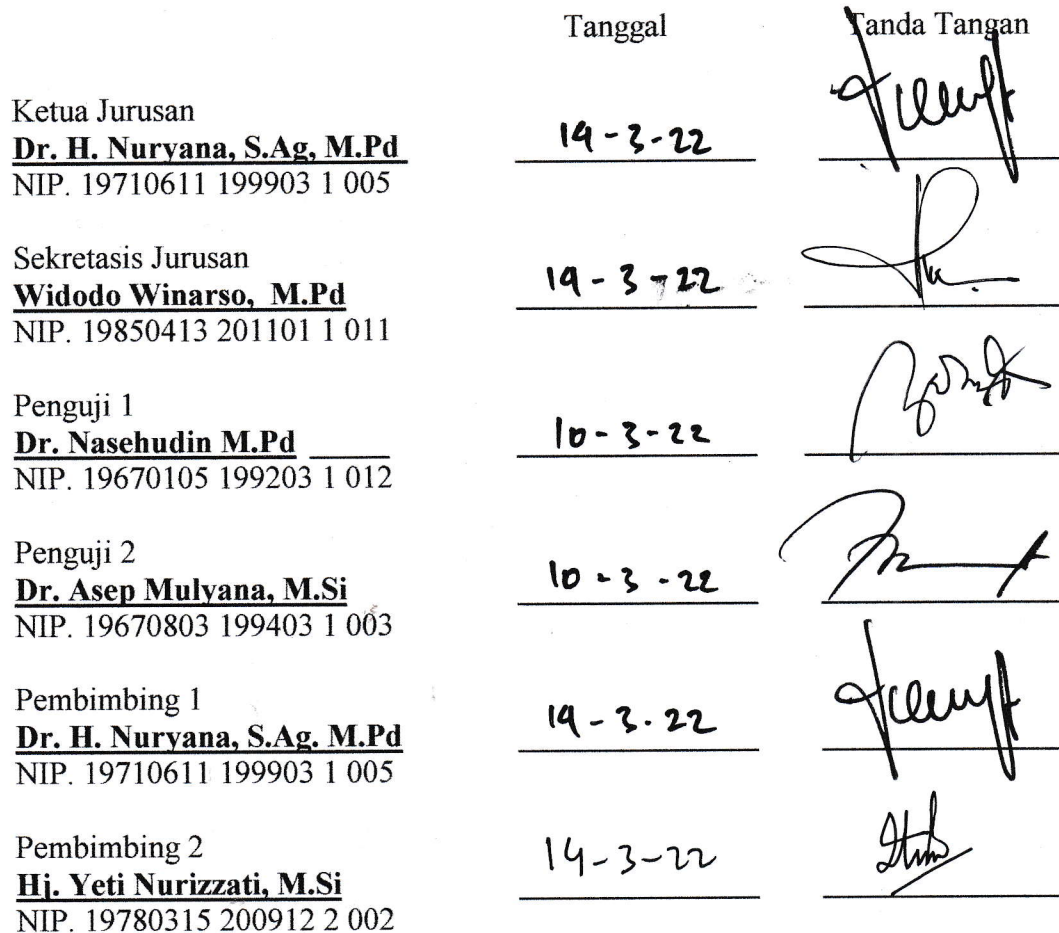 Tanggal Tanda Tangan
Ketua Jurusan
Dr. H. Nuryana, S.Ag, M.Pd 19-3-22
NIP. 19710611 199903 1 005
Sekretasis Jurusan
Widodo Winarso, M.Pd 19-3-22
NIP. 19850413 201101 1 011
Penguji 1
Dr. Nasehudin M.Pd 10-3-22
NIP. 19670105 199203 1 012
Penguji 2
Dr. Asep Mulyana, M.Si 10-3-22
NIP. 19670803 199403 1 003
Pembimbing 1
Dr. H. Nuryana, S.Ag. M.Pd 19-3-22
NIP. 19710611 199903 1 005
Pembimbing 2
Hj. Yeti Nurizzati, M.Si 14-3-22
NIP. 19780315 200912 2 002